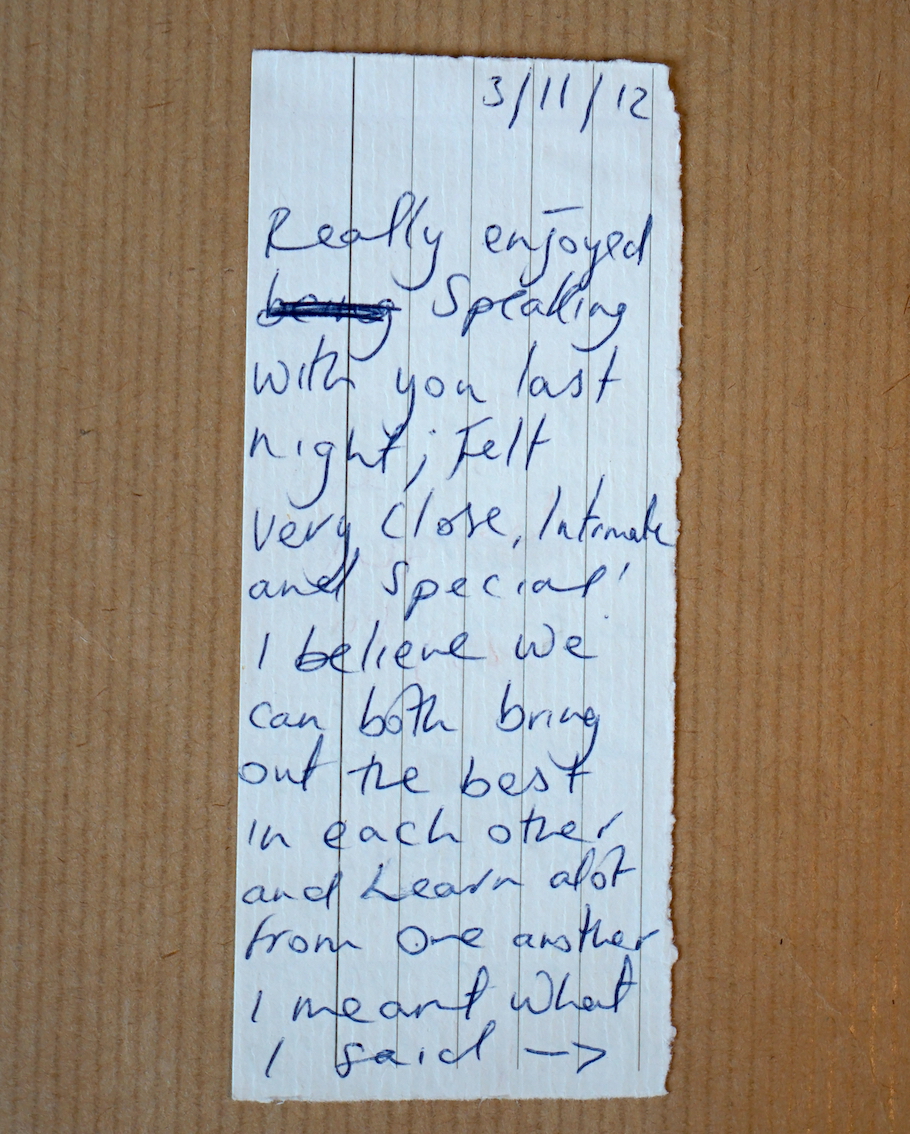 3/11/12
Really enjoyed
being Speaking
with you last
night; Felt
very close, Intimate
and special!
I believe we
can both bring
out the best
in each other
and Learn alot
from one another
I meant what
I said →